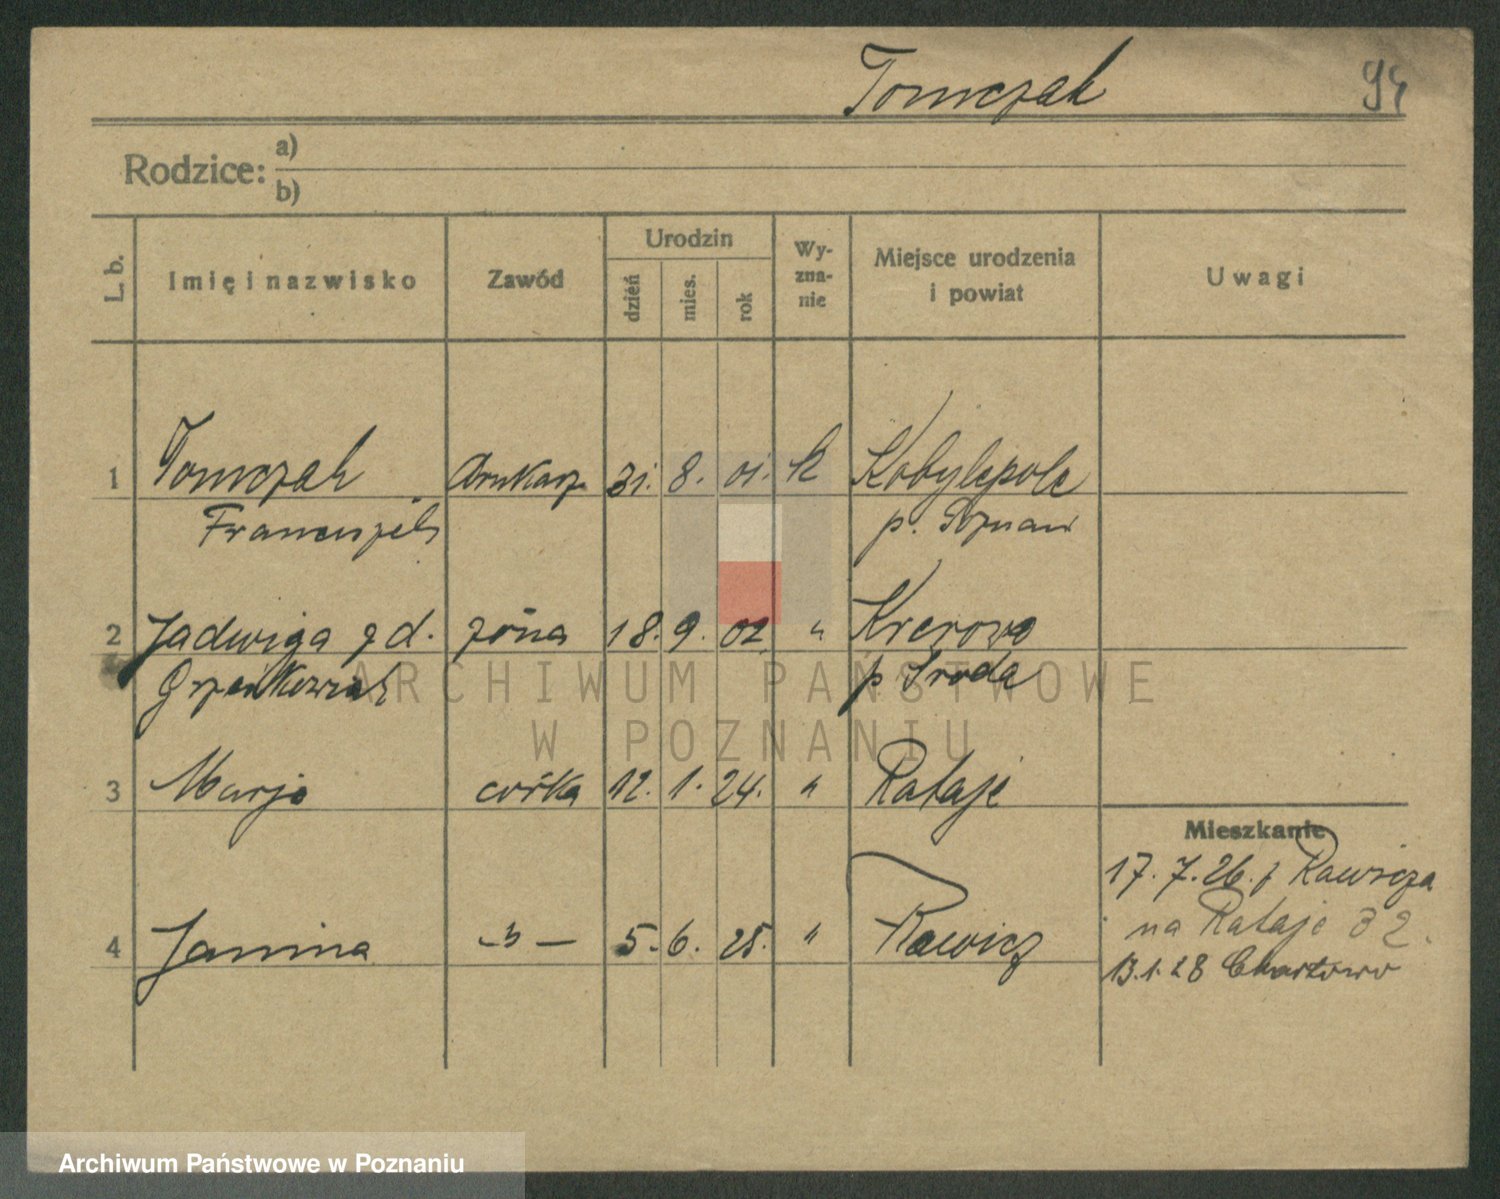 Tomczak 94
Rodzice: a)
b)
L. b. Imię i nazwisko Zawód Urodzin dzień mies. rok Wy-zna-nie Miejsce urodzenia i powiat Uwagi
1 Tomczak drukarz 31. 8. 01. k Kobylepole
Franciszek p. Poznań
2 Jadwiga zd. żona 18. 9. 02. " Krerowo
Grześkowiak p Środa
3 Marja córka 12. 1. 24. " Rataje
Mieszkanie
17. 7. 26. z Rawicza
na Rataje 32.
4 Janina -"- 5. 6. 25. " Rawicz
13.1.28 Chartowo
ARCHIWUM PAŃSTWOWE
W POZNANIU
Archiwum Państwowe w Poznaniu